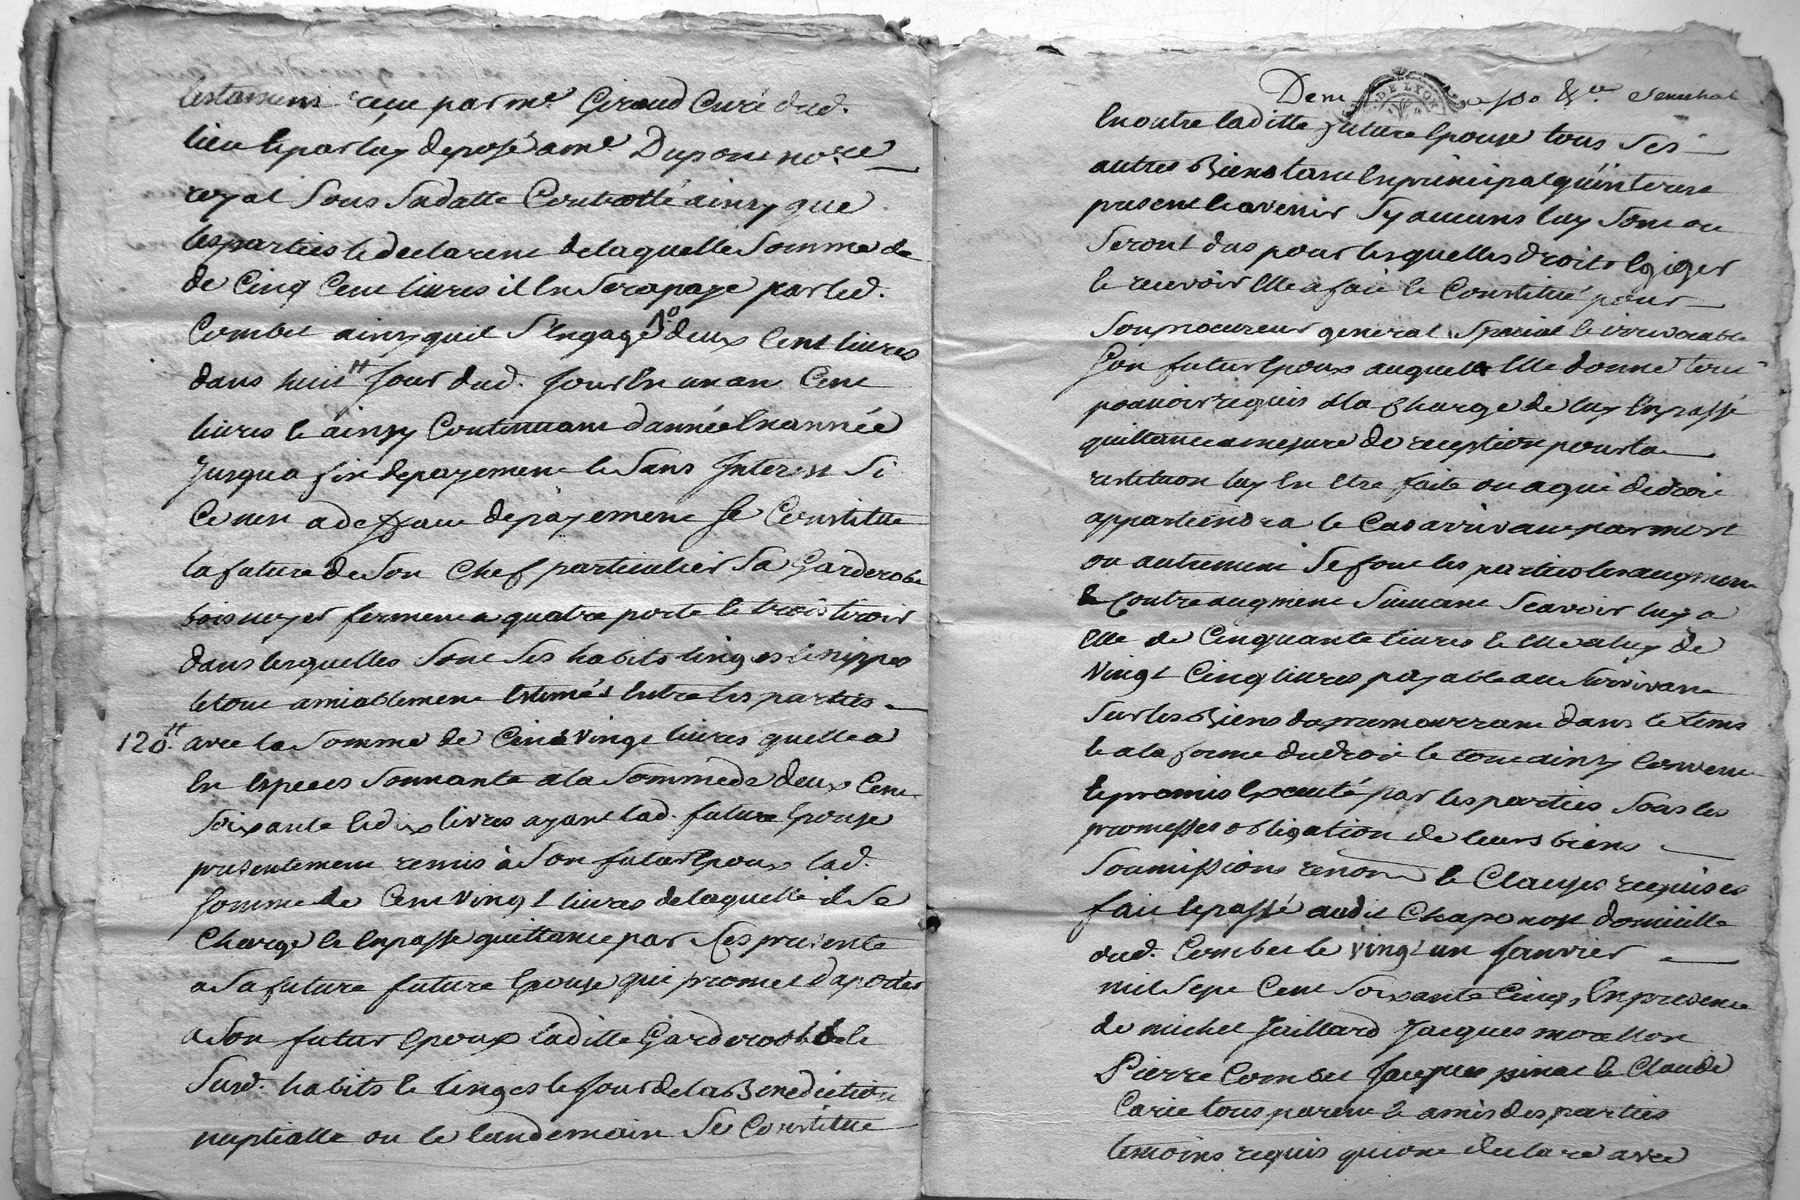 testament reçu par me. Giraud Curé dud.
lieu & par luy deposé a me. Dupont no.re
royal sous sadatte Controllé ainsy que
les parties le declarent de laquelle somme de
de Cinq Cent livres il En sera payé par led.
Combet ainsy quil s'Engage 1o. deux Cent livres
dans huit jour dud. jour En un an Cent
livres & ainsy Continuant d'année En année
jusqua fin de payement & sans Interest si
Ce nest a deffaut de payement se Constitue
la future de son Chef particulier sa Garderobe
bois noyer fermant a quatre porte & trois tiroir
dans lesquelles sont ses habits linges & nippes
le tout amiablement Estimés Entre les parties
120.tt avec la somme de Cent Vingt livres quelle a
En Especes sonnante a la somme de deux Cent
soixante & dix livres ayant lad. future Epouse
presentement remis à son futur Epoux lad.
somme de Cent Vingt livres de laquelle il se
Charge & En passe quittance par Ces presente
a sa future future Epouse qui promet d'aporter
a son futur Epoux laditte Garderobe & le
susd. habits & linges le jour de la Benediction
nuptialle ou le landemain se Constitue
De LYON
Enoutre laditte future Epouse tous ses
autres Biens tant En principal qu'interest
present & avenir s'y aucuns luy sont ou
seront dus pour lesquelles droits Exiger
& recevoir Elle a fait & Constitué pour
son procureur general special & irrevocable
son futur Epoux auquel Elle donne tout
pouvoir requis a la Charge de luy En passé
quittance a mesure de reception pour la
restitution luy En Etre faite ou a qui de droit
appartiendra le Cas arrivant par mort
ou autrement se font les parties les augment
& Contre augment suivant scavoir luy a
Elle de Cinquante livres & Elle a luy de
Vingt Cinq livres payable au survivant
sur les Biens du premourrant dans le tems
& a la forme du droit le tout ainsy Convenu
& promis Executé par les parties sous les
promesses obligation de leurs biens
soumissions renon & Clauses requises
fait & passé audit Chaponost domicille
dud. Combet le Vingt un janvier
mil sept Cent soixante Cinq, En presence
de michel Gaillard jacques morellon
Pierre Combet jacques pinat & Claude
Carie tous parent & amis des parties
temoins requis qui ont declaré avec